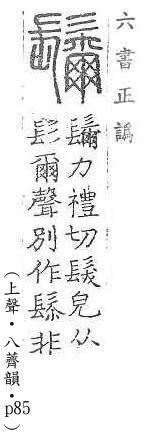 六書正譌
鬗力禮切髮皃从
髟爾聲別作鬖非
(上聲・八薺韻・p85)